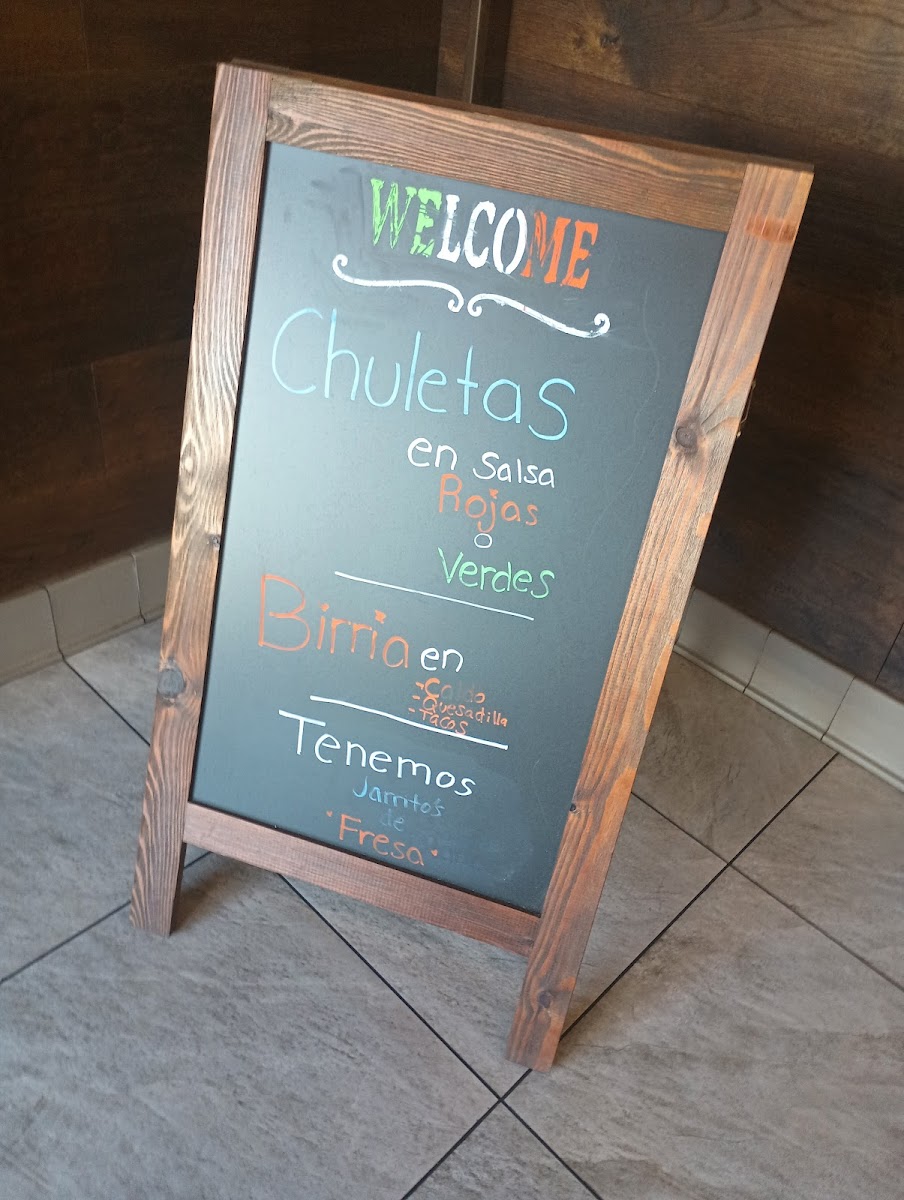 WELCOME
Chuletas
en Salsa
Rojas
o
Verdes
Birria en
-Caldo
-Quesadilla
-Tacos
Tenemos
Jarrito's
de
"Fresa"